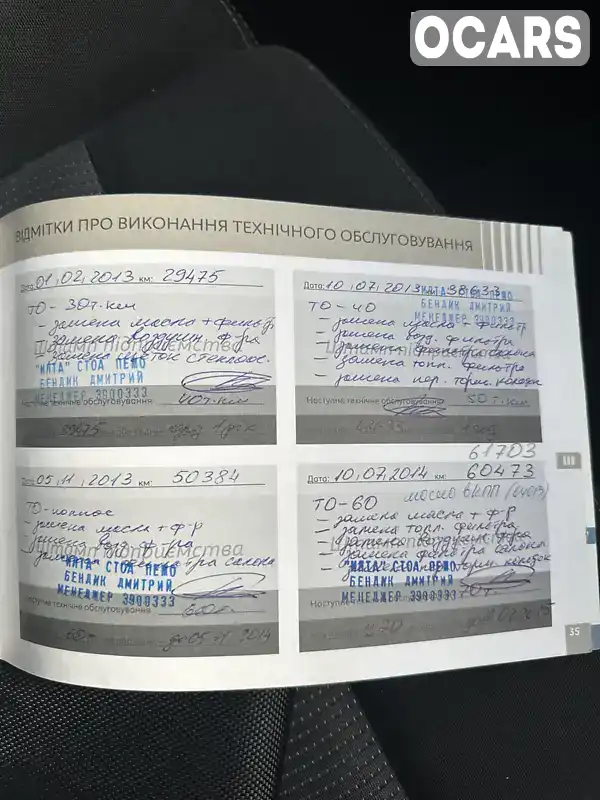 OCARS
ВІДМІТКИ ПРО ВИКОНАННЯ ТЕХНІЧНОГО ОБСЛУГОВУВАННЯ
Дата: 01,02,2013 км: 29475
ТО-30т.км
- замена масла + фильтр
- замена воздушн. ф-ра
Штамп підприємства
- замена щеток стеклооч.
"ИЛТА" СТОА ПЕЖО
БЕНДИК ДМИТРИЙ
МЕНЕДЖЕР 3900333
Наступне технічне обслуговування 40т.км
39475
Дата: 10,07,2013 км: 38633
"ИЛТА" СТОА ПЕЖО
БЕНДИК ДМИТРИЙ
МЕНЕДЖЕР 3900333
ТО-40
- замена масла + фильтр
- замена возд. фильтра
- замена фильтра салона
- замена топл. фильтра
- замена пер. торм. колодок
Наступне технічне обслуговування 50т.км
1 год
61703
Дата: 05,11,2013 км: 50384
ТО-
- замена масла + ф-р
- замена возд. ф-ра
Штамп підприємства
- замена ф-ра салона
"ИЛТА" СТОА ПЕЖО
БЕНДИК ДМИТРИЙ
МЕНЕДЖЕР 3900333
Наступне технічне обслуговування 60т.
до 05.11.2014
Дата: 10,07,2014 км: 60473
ТО-60 масло в КПП
- замена масла + ф-р
- замена топл. фильтра
- замена воздушн. ф-ра
- замена фильтра салона
колодок
"ИЛТА" СТОА ПЕЖО
БЕНДИК ДМИТРИЙ
МЕНЕДЖЕР 3900333
Наступне 70т.
35